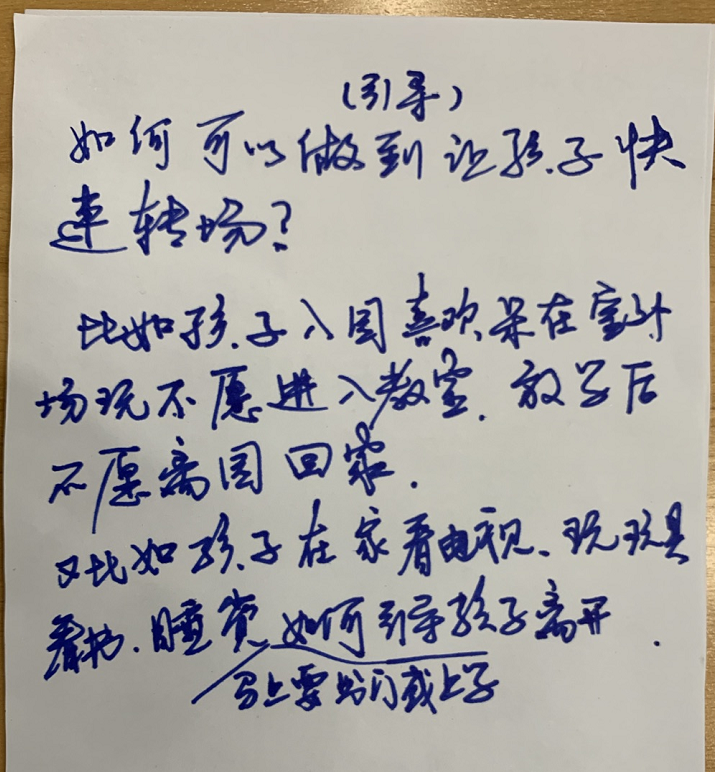 (引导)
如何可以做到让孩子快
速转场?
比如孩子入园喜欢呆在室外
场玩不愿进入教室.放学后
不愿离园回家.
又比如孩子在家看电视、玩玩具
看书.睡觉如何引导孩子离开.
马上要出门或上学